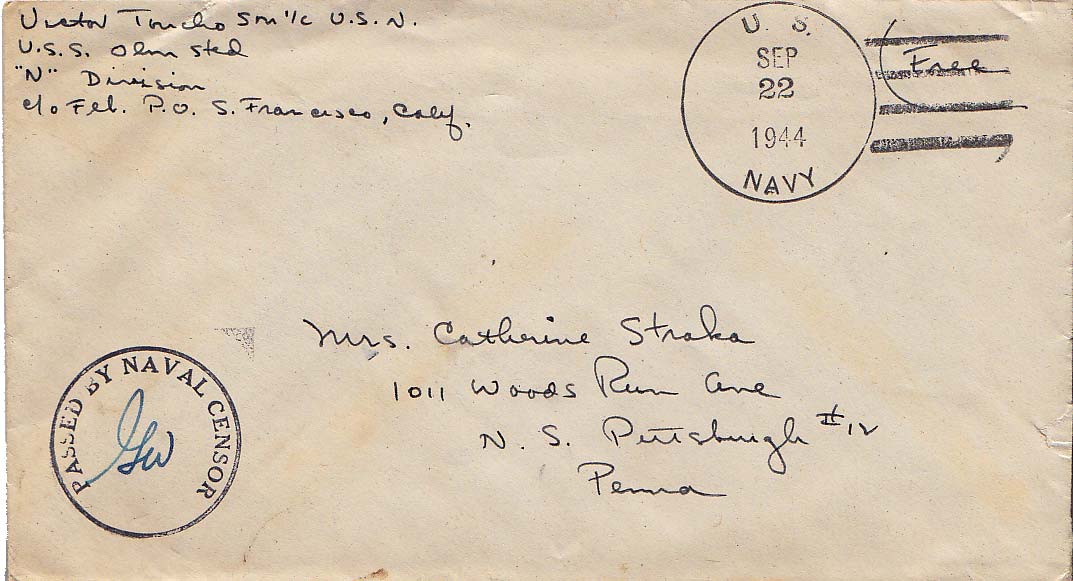 Victor Toncho Sm 1/c U.S.N.
U.S.S. Olmsted
"N" Division
c/o Fl't. P.O. S. Francisco, Calif.
U. S.
SEP
22
1944
NAVY
Free
Mrs. Catherine Straka
1011 Woods Run Ave
N. S. Pittsburgh #12
Penna
PASSED BY NAVAL CENSOR
GW